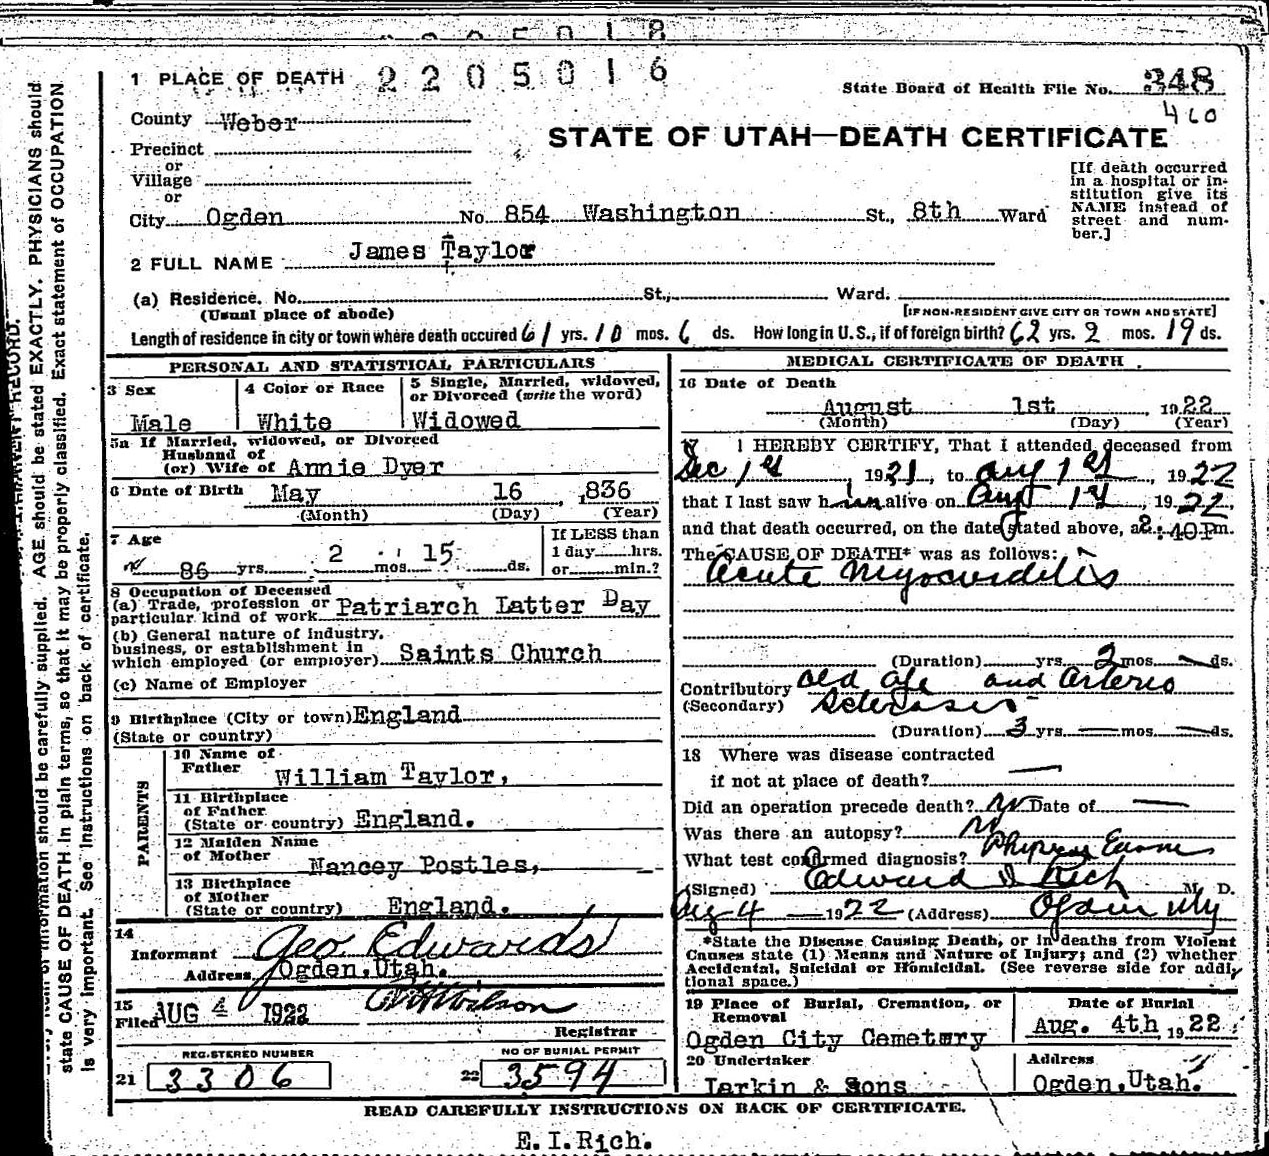 1 PLACE OF DEATH 2205016
State Board of Health File No. 348
460
County Weber
STATE OF UTAH—DEATH CERTIFICATE
Precinct
or
Village
or
City Ogden No. 854 Washington St., 8th Ward
[If death occurred in a hospital or in-
stitution give its
NAME instead of
street and num-
ber.]
2 FULL NAME James Taylor
(a) Residence. No. St., Ward.
(Usual place of abode) [IF NON-RESIDENT GIVE CITY OR TOWN AND STATE]
Length of residence in city or town where death occured 61 yrs. 10 mos. 6 ds. How long in U.S., if of foreign birth? 62 yrs. 2 mos. 19 ds.
PERSONAL AND STATISTICAL PARTICULARS
3 Sex Male
4 Color or Race White
5 Single, Married, widowed,
or Divorced (write the word)
Widowed
5a If Married, widowed, or Divorced
Husband of
(or) Wife of Annie Dyer
6 Date of Birth May 16 ,836
(Month) (Day) (Year)
7 Age 86 yrs. 2 mos. 15 ds.
If LESS than
1 day hrs.
or min.?
8 Occupation of Deceased
(a) Trade, profession or
particular kind of work Patriarch Latter Day
(b) General nature of Industry,
business, or establishment in
which employed (or employer) Saints Church
(c) Name of Employer
9 Birthplace (City or town) England
(State or country)
PARENTS
10 Name of
Father William Taylor,
11 Birthplace
of Father
(State or country) England.
12 Maiden Name
of Mother Nancey Postles,
13 Birthplace
of Mother
(State or country) England.
14
Informant Geo Edwards
Address Ogden,Utah.
15
Filed AUG 4 1922 Wilson
Registrar
REGISTERED NUMBER
21 3306
NO OF BURIAL PERMIT
22 3594
MEDICAL CERTIFICATE OF DEATH
16 Date of Death
August 1st, 1922
(Month) (Day) (Year)
I HEREBY CERTIFY, That I attended deceased from
Dec 1st, 1921 to Aug 1st, 1922
that I last saw him alive on Aug 1st, 1922,
and that death occurred, on the date stated above, at 2:40 Pm.
The CAUSE OF DEATH* was as follows:
Acute Myocarditis
(Duration) yrs. 2 mos. — ds.
Contributory Old age and Arterio
(Secondary) Sclerosis
(Duration) 3 yrs. — mos. — ds.
18 Where was disease contracted
if not at place of death? —
Did an operation precede death? No Date of —
Was there an autopsy? No
What test confirmed diagnosis? Physical Exam
(Signed) Edward I Rich M. D.
Aug 4 — 1922 (Address) Ogden Utah
*State the Disease Causing Death, or in deaths from Violent
Causes state (1) Means and Nature of Injury; and (2) whether
Accidental, Suicidal or Homicidal. (See reverse side for addi-
tional space.)
19 Place of Burial, Cremation, or
Removal
Ogden City Cemetery
Date of Burial
Aug. 4th, 1922.
20 Undertaker
Larkin & Sons
Address
Ogden,Utah.
READ CAREFULLY INSTRUCTIONS ON BACK OF CERTIFICATE.
E.I.Rich.
information should be carefully supplied. AGE should be stated EXACTLY. PHYSICIANS should
state CAUSE OF DEATH in plain terms, so that it may be properly classified. Exact statement of OCCUPATION
is very important. See instructions on back of certificate.